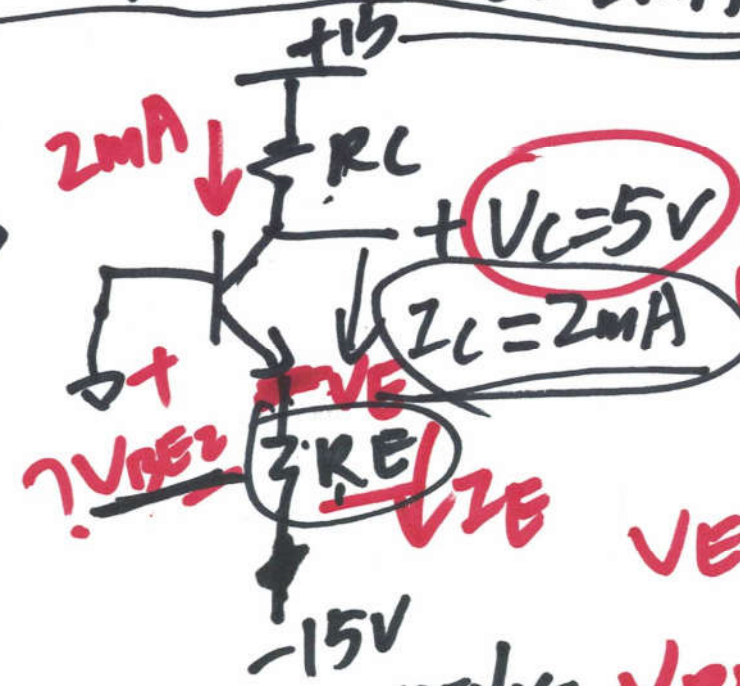 +15
2mA
RC
+ VC=5V
IC=2mA
+
-VE
?VBE2
RE
IE
VE
-15V